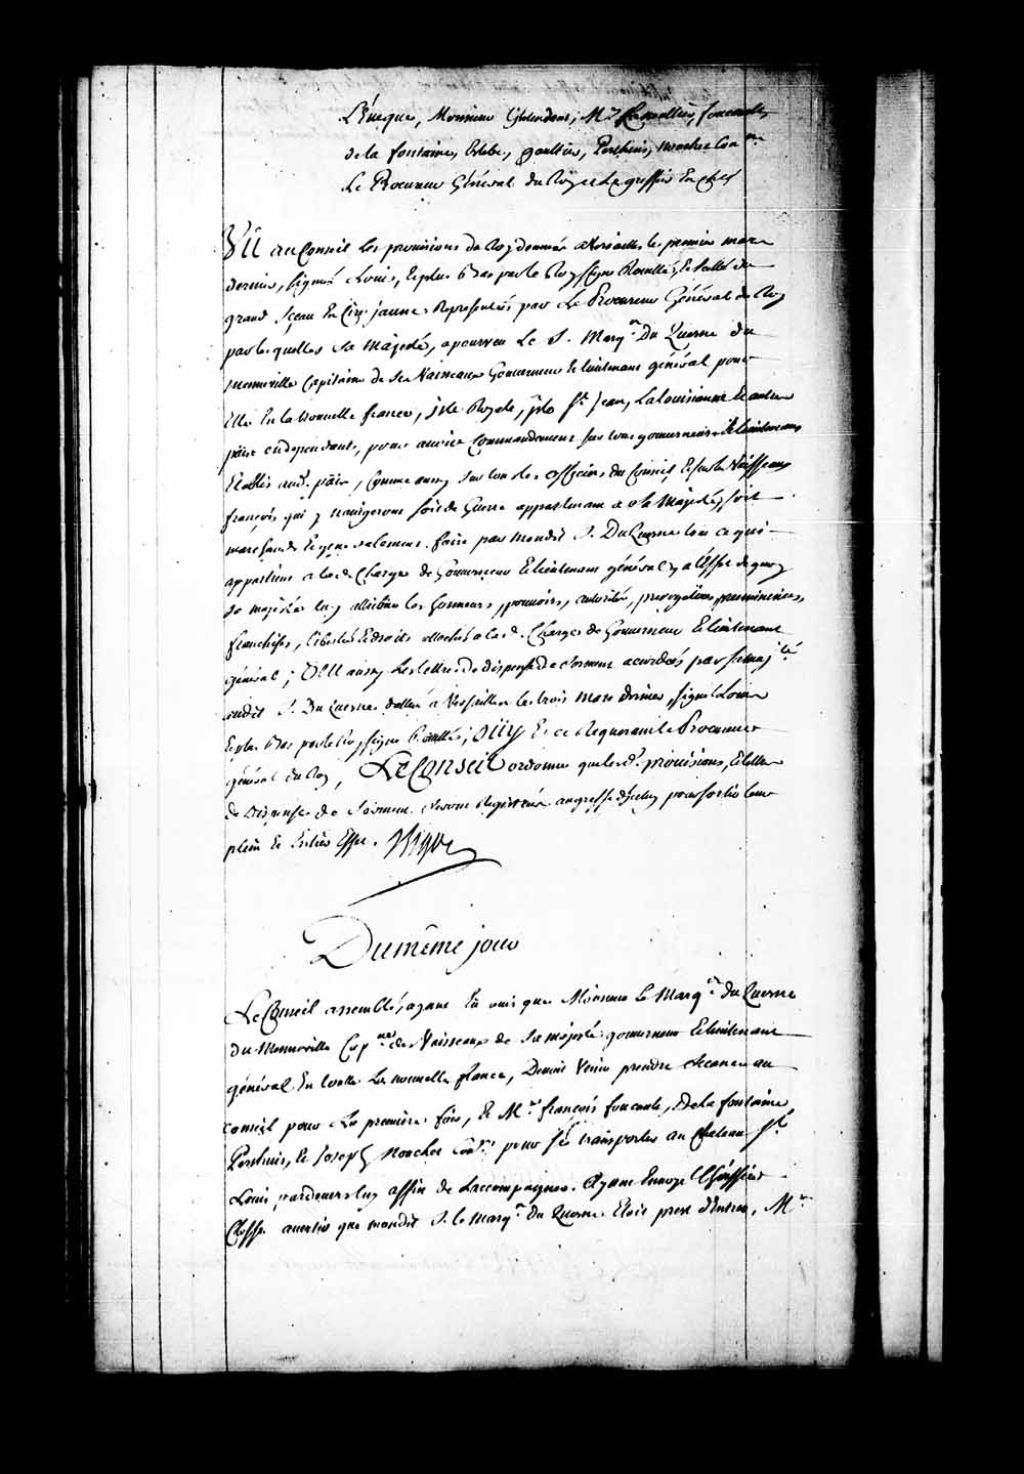 L'Evêque, Monsieur L'Intendant, M.rs foucault,
de la fontaine, Gaultier, Perthuis, Nouchet Con.ers
Le Procureur Général du Roy et Le greffier En chef
Vû au Conseil les provisions du Roy données a Versailles le premier mars
dernier, signés Louis, Et plus Bas par le Roy signé Roüillé, Et scellé du
grand sçeau En Cire jaune Representés par Le Procureur Général du Roy
par lesquelles sa Majesté, a pourveu Le S. Marq.is Du Quesne du
menneville Capitaine de ses Vaisseaux Gouverneur Et lieutenant général pour
Elle En la Nouvelle france, isle Royale, isle S.t Jean, La louisianne Et autres
païs En dependants, pour avoir Commandement sur tous gouverneurs Et lieutenans
Etablis aud. païs, Comme aussy sur tous les officiers du Conseil Et sur les Vaisseaux
françois qui y navigeront soit de Guerre appartenans a sa Majesté, soit
marchands Et generalement faire par mondit S. DuQuesne tout ce qui
appartient a lad. Charge de Gouverneur Et lieutenant général, a l'effet de quoy
sa majesté luy attribue les honneurs, pouvoirs, autorités, prerogatives preeminences,
franchises, libertés Et droits attachés a lad. Charge de Gouverneur Et lieutenant
général; VEU aussy Les lettres de dispense de serment accordées par sa maj.té
audit S. Du Quesne dattées a Versailles le trois mars dernier, signé Louis
Et plus Bas par le Roy signé Roüillé; OUY Et ce Requerant le Procureur
général du Roy, LE CONSEIL ordonne que lesd. provisions, Et lettres
de dispense de serment seront Registrées au greffe d'iceluy pour sortir leur
plein Et Entier Effet. Bigot
Du même jour
Le Conseil assemblé, ayant Eû avis que Monsieur Le Marq.is du Quesne
du Menneville Cap.ne des Vaisseaux de sa majesté gouverneur Et lieutenant
général En toutte La nouvelle france, Devoit Venir prendre seance au
conseil pour La premiere fois, Et M.rs françois foucault, De la fontaine
Perthuis, Et Joseph Nouchet Con.ers pour se transporter au Chateau S.t
Louis, par devers luy affin de L'accompagner. Ayant Envoyé l'huissier
avertir que mondit S. le Marq.is du Quesne Etoit prest d'Entrer, M.rs